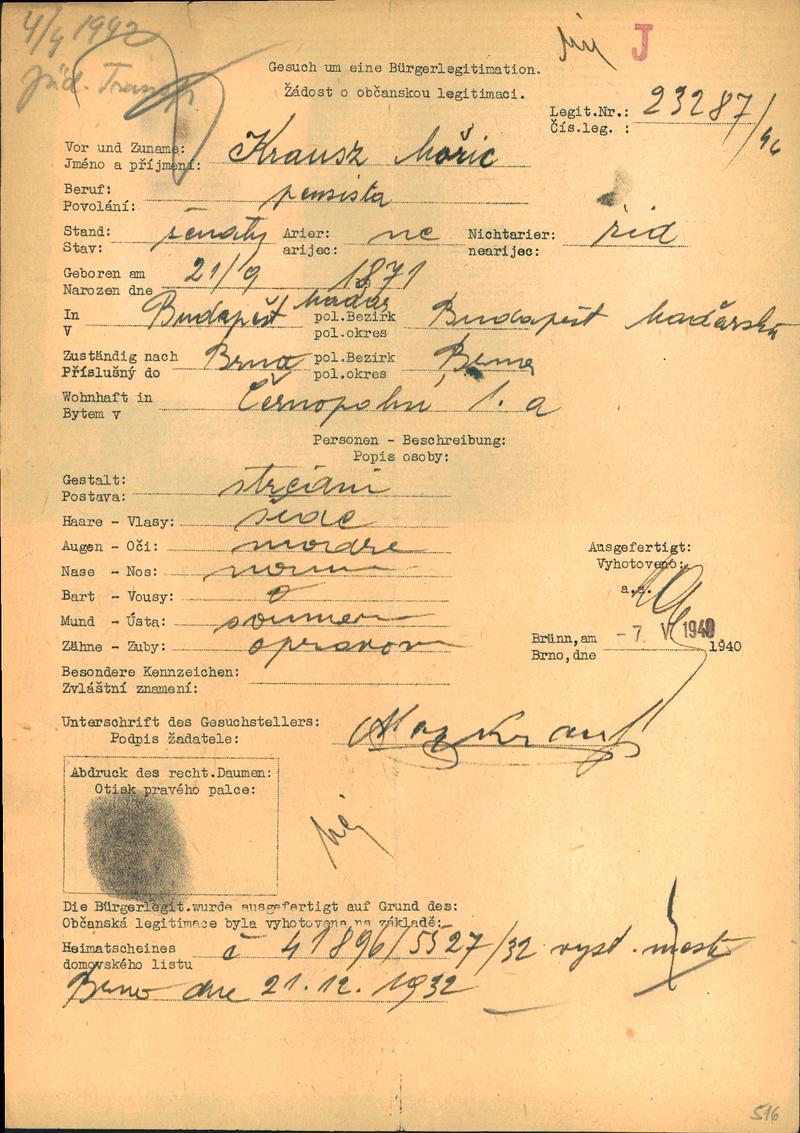 4/4 1942
Jüd. Transp.
J
Gesuch um eine Bürgerlegitimation.
Žádost o občanskou legitimaci.
Legit.Nr.: 23287/
Čís.leg. :
Vor und Zuname: Krausz Mořic
Jméno a příjmení:
Beruf: pensista
Povolání:
Stand: ženatý Arier: ne Nichtarier: žid
Stav: arijec: nearijec:
Geboren am 21/9 1871
Narozen dne
In Budapešt maďar pol.Bezirk Budapešt Maďarsko
V pol.okres
Zuständig nach Brno pol.Bezirk Brno
Příslušný do pol.okres
Wohnhaft in Černopolní 1. a
Bytem v
Personen - Beschreibung:
Popis osoby:
Gestalt: střední
Postava:
Haare - Vlasy: šedé
Augen - Oči: modré
Nase - Nos: norm
Bart - Vousy: 0
Mund - Ústa: soumer
Zähne - Zuby: opravov
Ausgefertigt:
Vyhotoveno:
a.a.
Brünn,am - 7. V 1940 1940
Brno,dne
Besondere Kennzeichen:
Zvláštní znamení:
Unterschrift des Gesuchstellers:
Podpis žadatele:
Abdruck des recht.Daumen:
Otisk pravého palce:
Die Bürgerlegit.wurde ausgefertigt auf Grund des:
Občanská legitimace byla vyhotovena na základě:
Heimatscheines č 41896/5527/32 vyst. mesto
domovského listu
Brno dne 21.12.1932
516